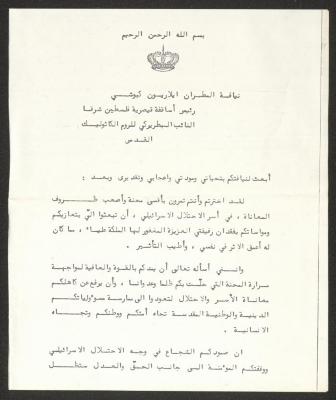 بسم الله الرحمن الرحيم
نيافة المطران ايلاريون كبوشي
رئيس أساقفة قيصرية فلسطين شرفا
النائب البطريركي للروم الكاثوليك
القدس
أبعث لنيافتكم بتحياتي ومودتي واعجابي وتقديرى وبعد :
لقد اخترتم وأنتم تمرون بأقسى محنة وأصعب ظروف
المعاناة ، في أسر الاحتلال الاسرائيلي ، أن تبعثوا اليّ بتعازيكم
ومواساتكم بفقدان رفيقتي العزيزة المغفور لها الملكة علياء ، مما كان
له أعمق الاثر في نفسي ، وأطيب التأثير .
وانني أسأله تعالى أن يمدكم بالقوة والعافية لمواجهة
مرارة المحنة التي حلّت بكم ظلما وعدوانا ، وأن يرفع عن كاهلكم
معاناة الأسر والاحتلال لتعودوا الى ممارسة مسؤولياتكم
الدينية والوطنية المقدسة تجاه أمتكم ووطنكم وتجاه
الانسانية .
ان صمودكم الشجاع في وجه الاحتلال الاسرائيلي
ووقفتكم المؤمنة الى جانب الحق والعدل ستظل